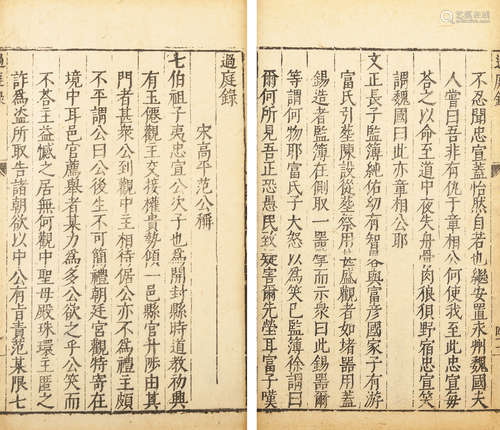 過庭錄
不忍聞忠宣蓋前也繼安置永州魏國夫
人嘗曰吾非有仇于章相公何使我至此忠宣每
荅之以命至道中夜失舟骨肉狼狽野宿忠宣笑
謂魏國曰此亦章相公耶
文正長子監簿純佑幼有智畧與富彥國家子有游
富氏引塟陳設從塟祭用甚盛觀者如堵器用葢
錫造者監簿在側取一器擘而示衆曰此錫器爾
等謂何物耶富氏子大怒以爲笑己監簿徐謂曰
爾何所見吾正恐愚民致疑害爾先塋耳富子嘆
過庭錄
宋高平范公稱
七伯祖子夷忠宣公次子也爲開封縣時道教初興
有玉僊觀主交接權貴勢傾一邑縣官升陟由其
門者甚衆公到觀中主相待倨公亦不爲禮主頗
不平謂公曰公後生不可簡禮朝廷官觀特寄在
境中耳邑官薦舉者某力爲多公欲之乎公笑而
不荅主益憾之居無何觀中聖母殿珠環主匿之
詐爲盜所取告諸朝欲以中公有旨責范某限七
過庭錄